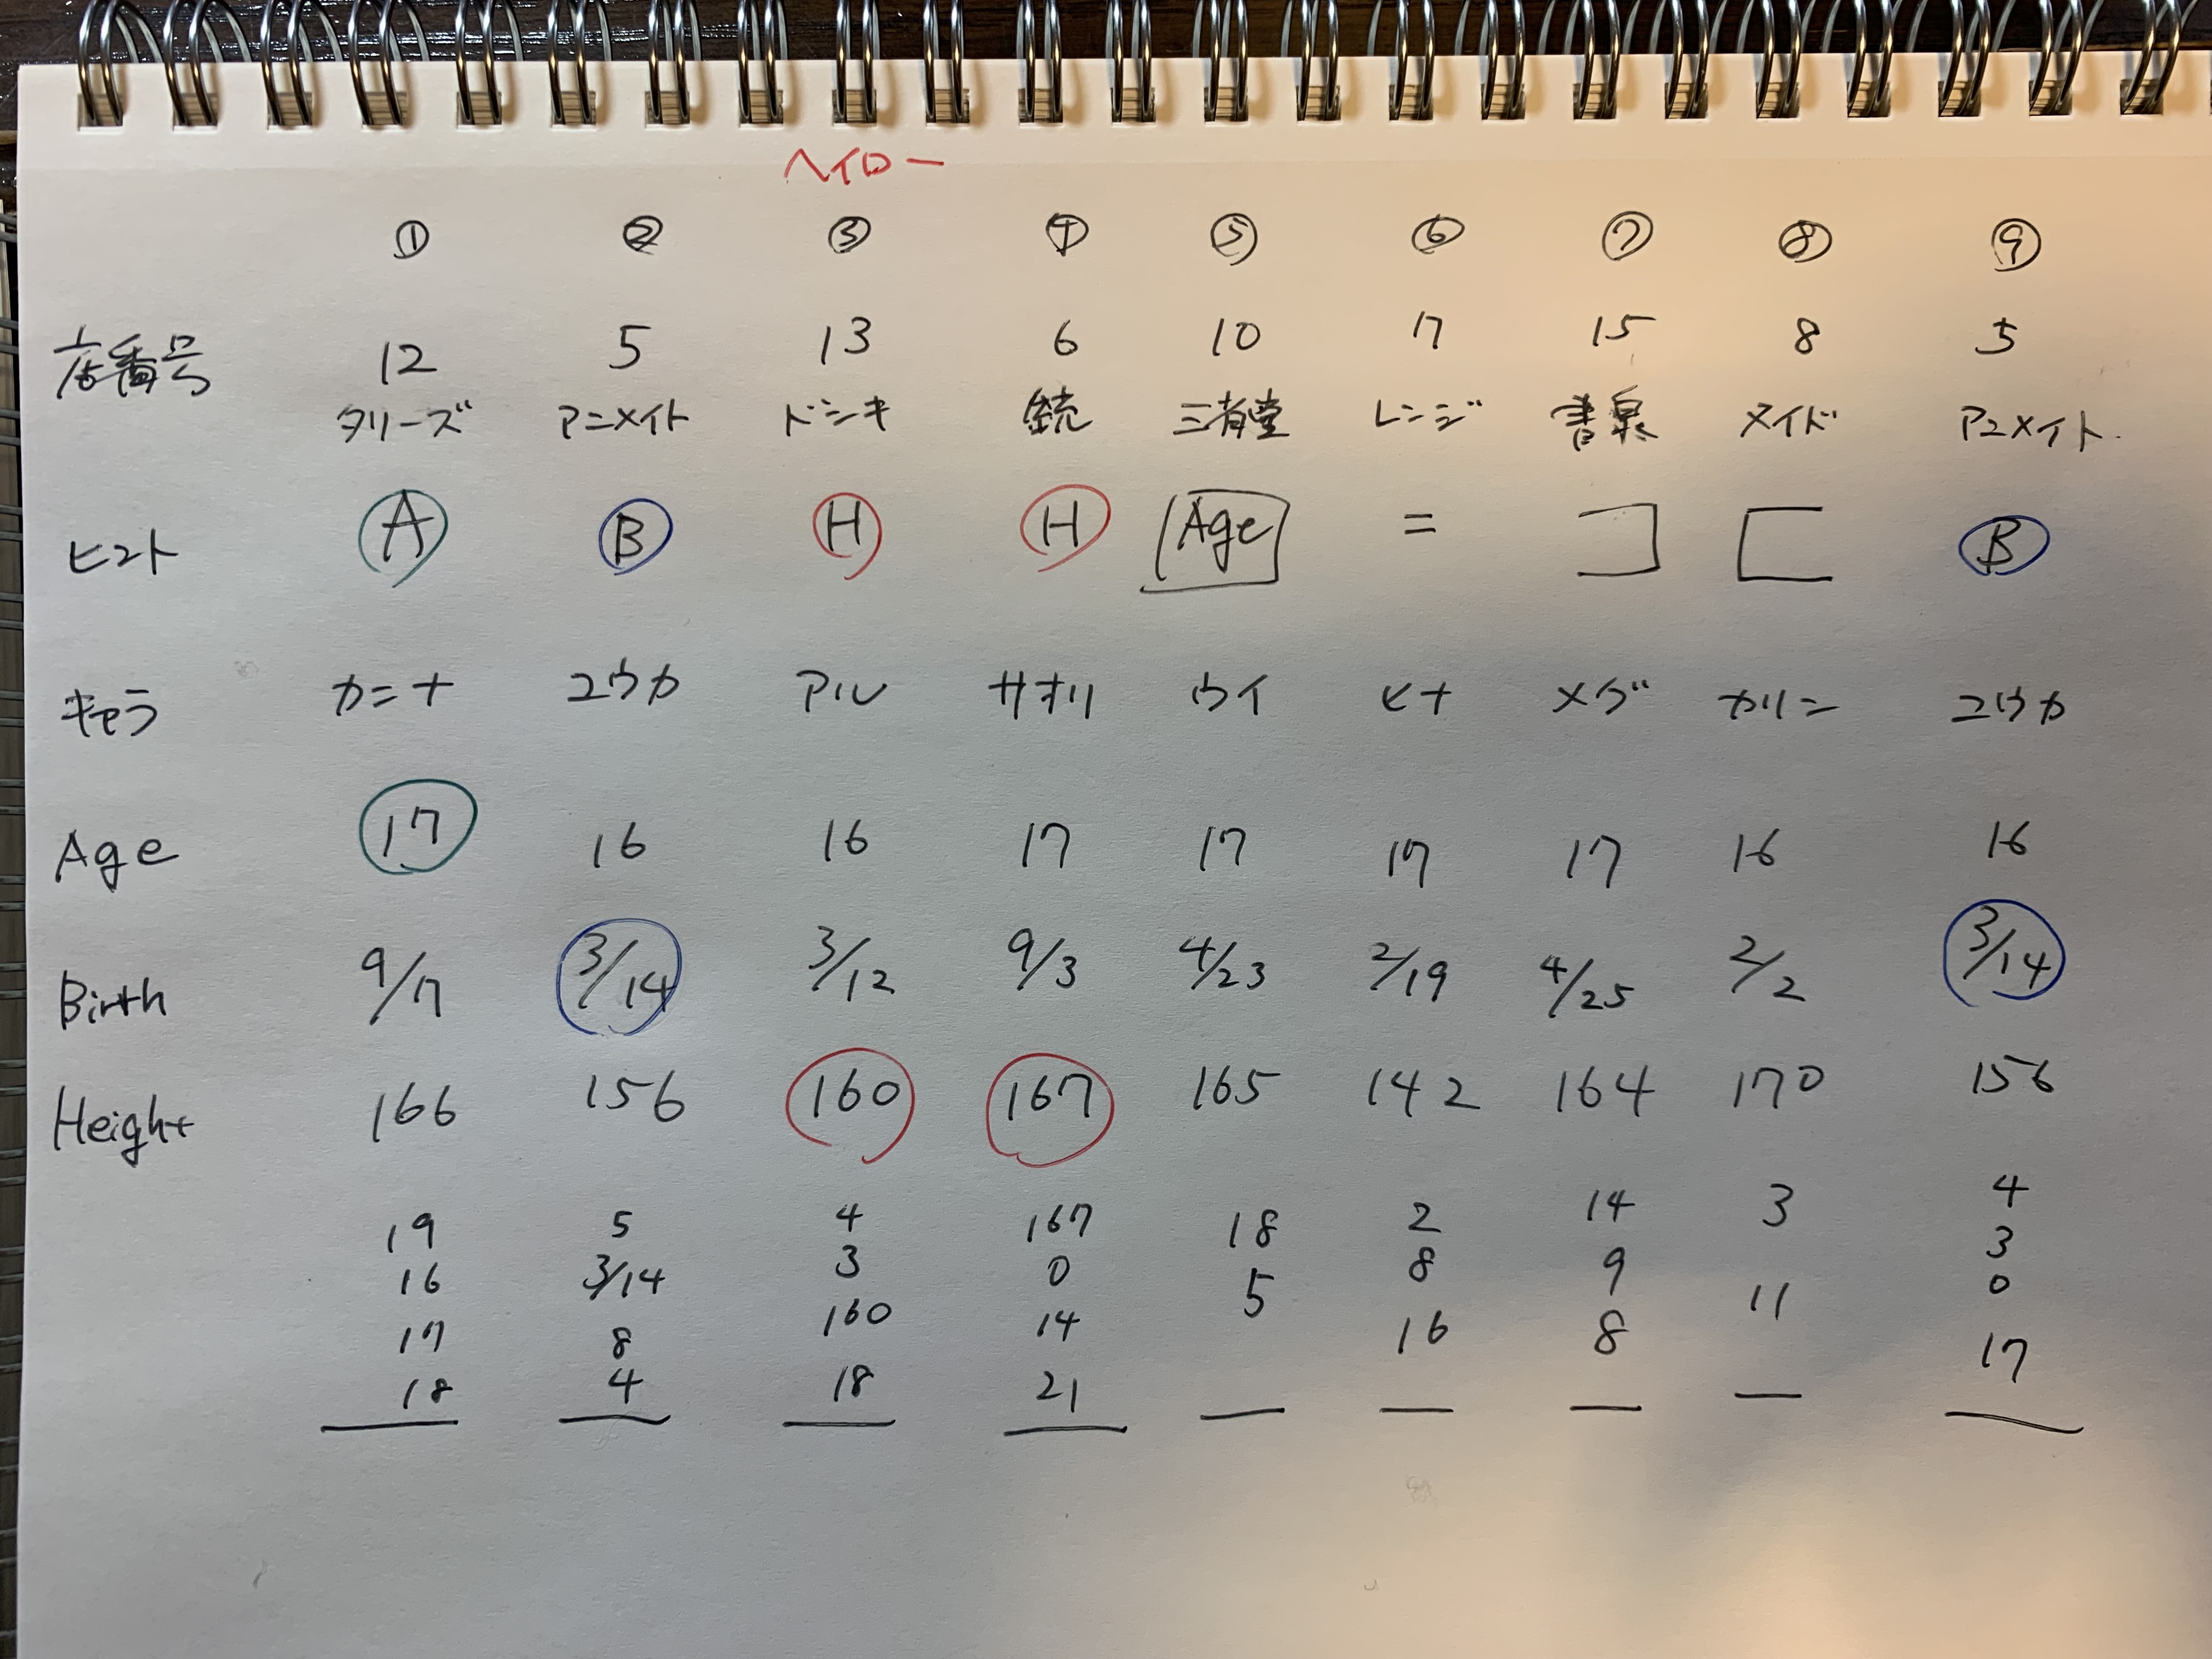 ヘイロー
① ② ③ ④ ⑤ ⑥ ⑦ ⑧ ⑨
店番号 12 5 13 6 10 17 15 8 5
タリーズ アニメイト ドンキ 銃 三省堂 レンジ 書泉 メイド アニメイト
ヒント A B H H Age = B
キャラ カンナ ユウカ アル サオリ ウイ ヒナ メグ カリン ユウカ
Age 17 16 16 17 17 17 17 16 16
Birth 9/17 3/14 3/12 9/3 4/23 2/19 4/25 2/2 3/14
Height 166 156 160 167 165 142 164 170 156
19 5 4 167 18 2 14 3 4
16 3/14 3 0 5 8 9 11 3
17 8 160 14 16 8 0
18 4 18 21 17